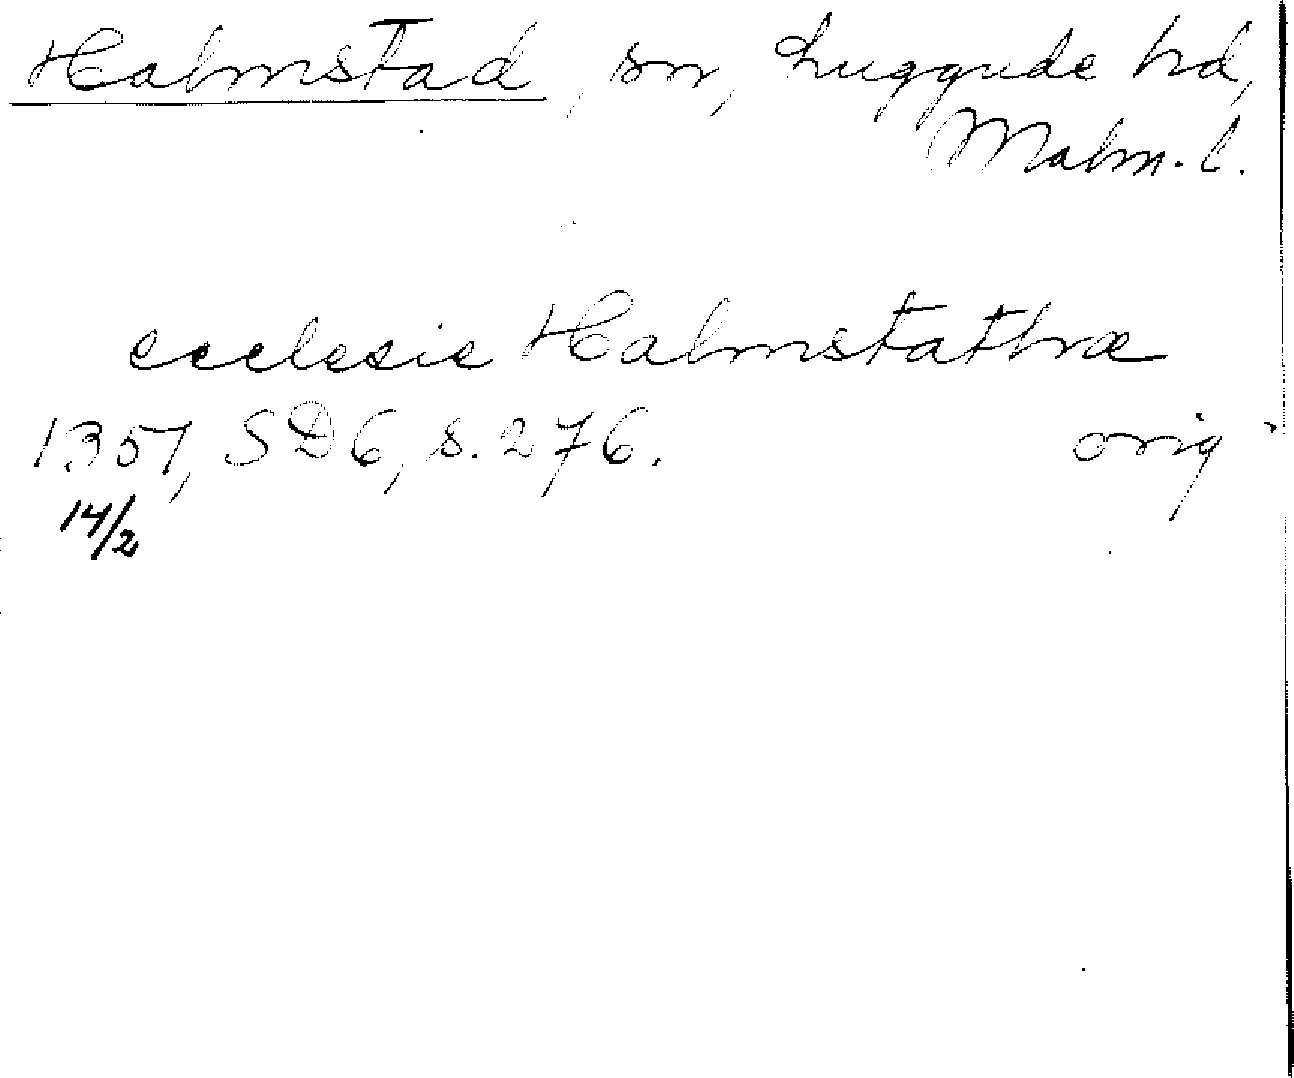 Halmstad, sn, Luggude hd,
Malm. l.
ecclesie Halmstathræ
1351, SD 6, s. 276. orig
14/2